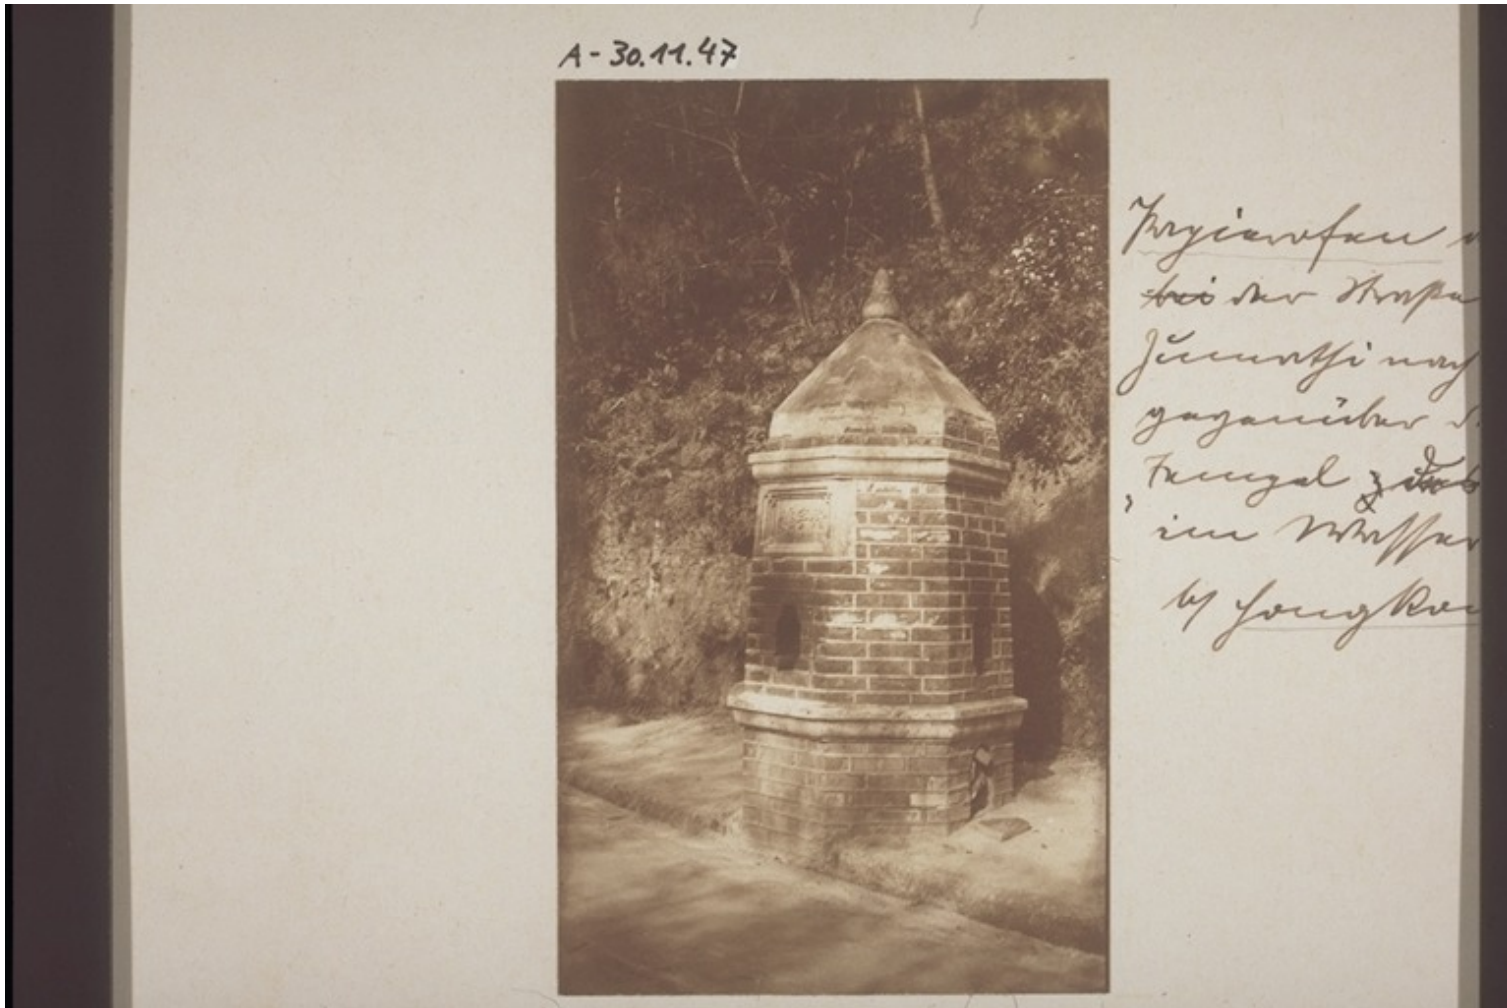 A-30.11.47
Papierofen
bei der Straße
nach
gegenüber d.
Tempel
im Wasser
b/ HongKon